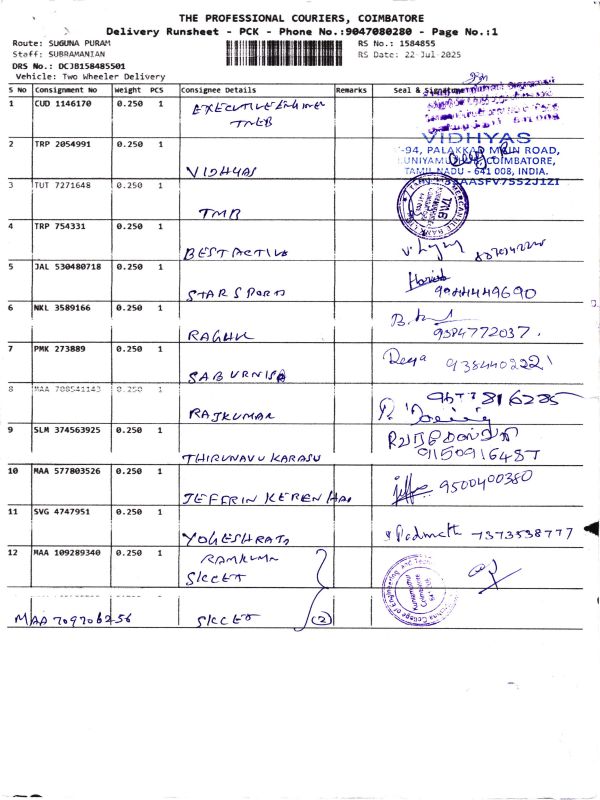 THE PROFESSIONAL COURIERS, COIMBATORE
Delivery Runsheet - PCK - Phone No.:9047080280 - Page No.:1
Route: SUGUNA PURAM
RS No.: 1584855
Staff: SUBRAMANIAN
RS Date: 22-Jul-2025
DRS No.: DCJB158485501
Vehicle: Two Wheeler Delivery
S No Consignment No Weight PCS Consignee Details Remarks Seal & Signature
1 CUD 1146170 0.250 1 EXECUTIVE ENGINEER
TNEB
2 TRP 2054991 0.250 1 VIDHYAS
VIDHYAS
PALAKKAD MAIN ROAD,
COIMBATORE,
TAMIL NADU - 641 008, INDIA.
3 TUT 7271648 0.250 1 TMB
4 TRP 754331 0.250 1 BESTACTIVE
5 JAL 530480718 0.250 1 STARSPORTS
9944449690
6 NKL 3589166 0.250 1 RAGHU
9384772037.
7 PMK 273889 0.250 1 SABURNISA
9384402221
8 MAA 708541143 0.250 1 RAJKUMAR
9577816285
9 SLM 374563925 0.250 1 THIRUNAVUKARASU
9150916487
10 MAA 577803526 0.250 1 JEFFRIN KERENHAP
9500400380
11 SVG 4747951 0.250 1 YOGESHRAJ
7373538777
12 MAA 109289340 0.250 1 RAMKUMAR
SKCET
MAA 709706256 SKCET (2)